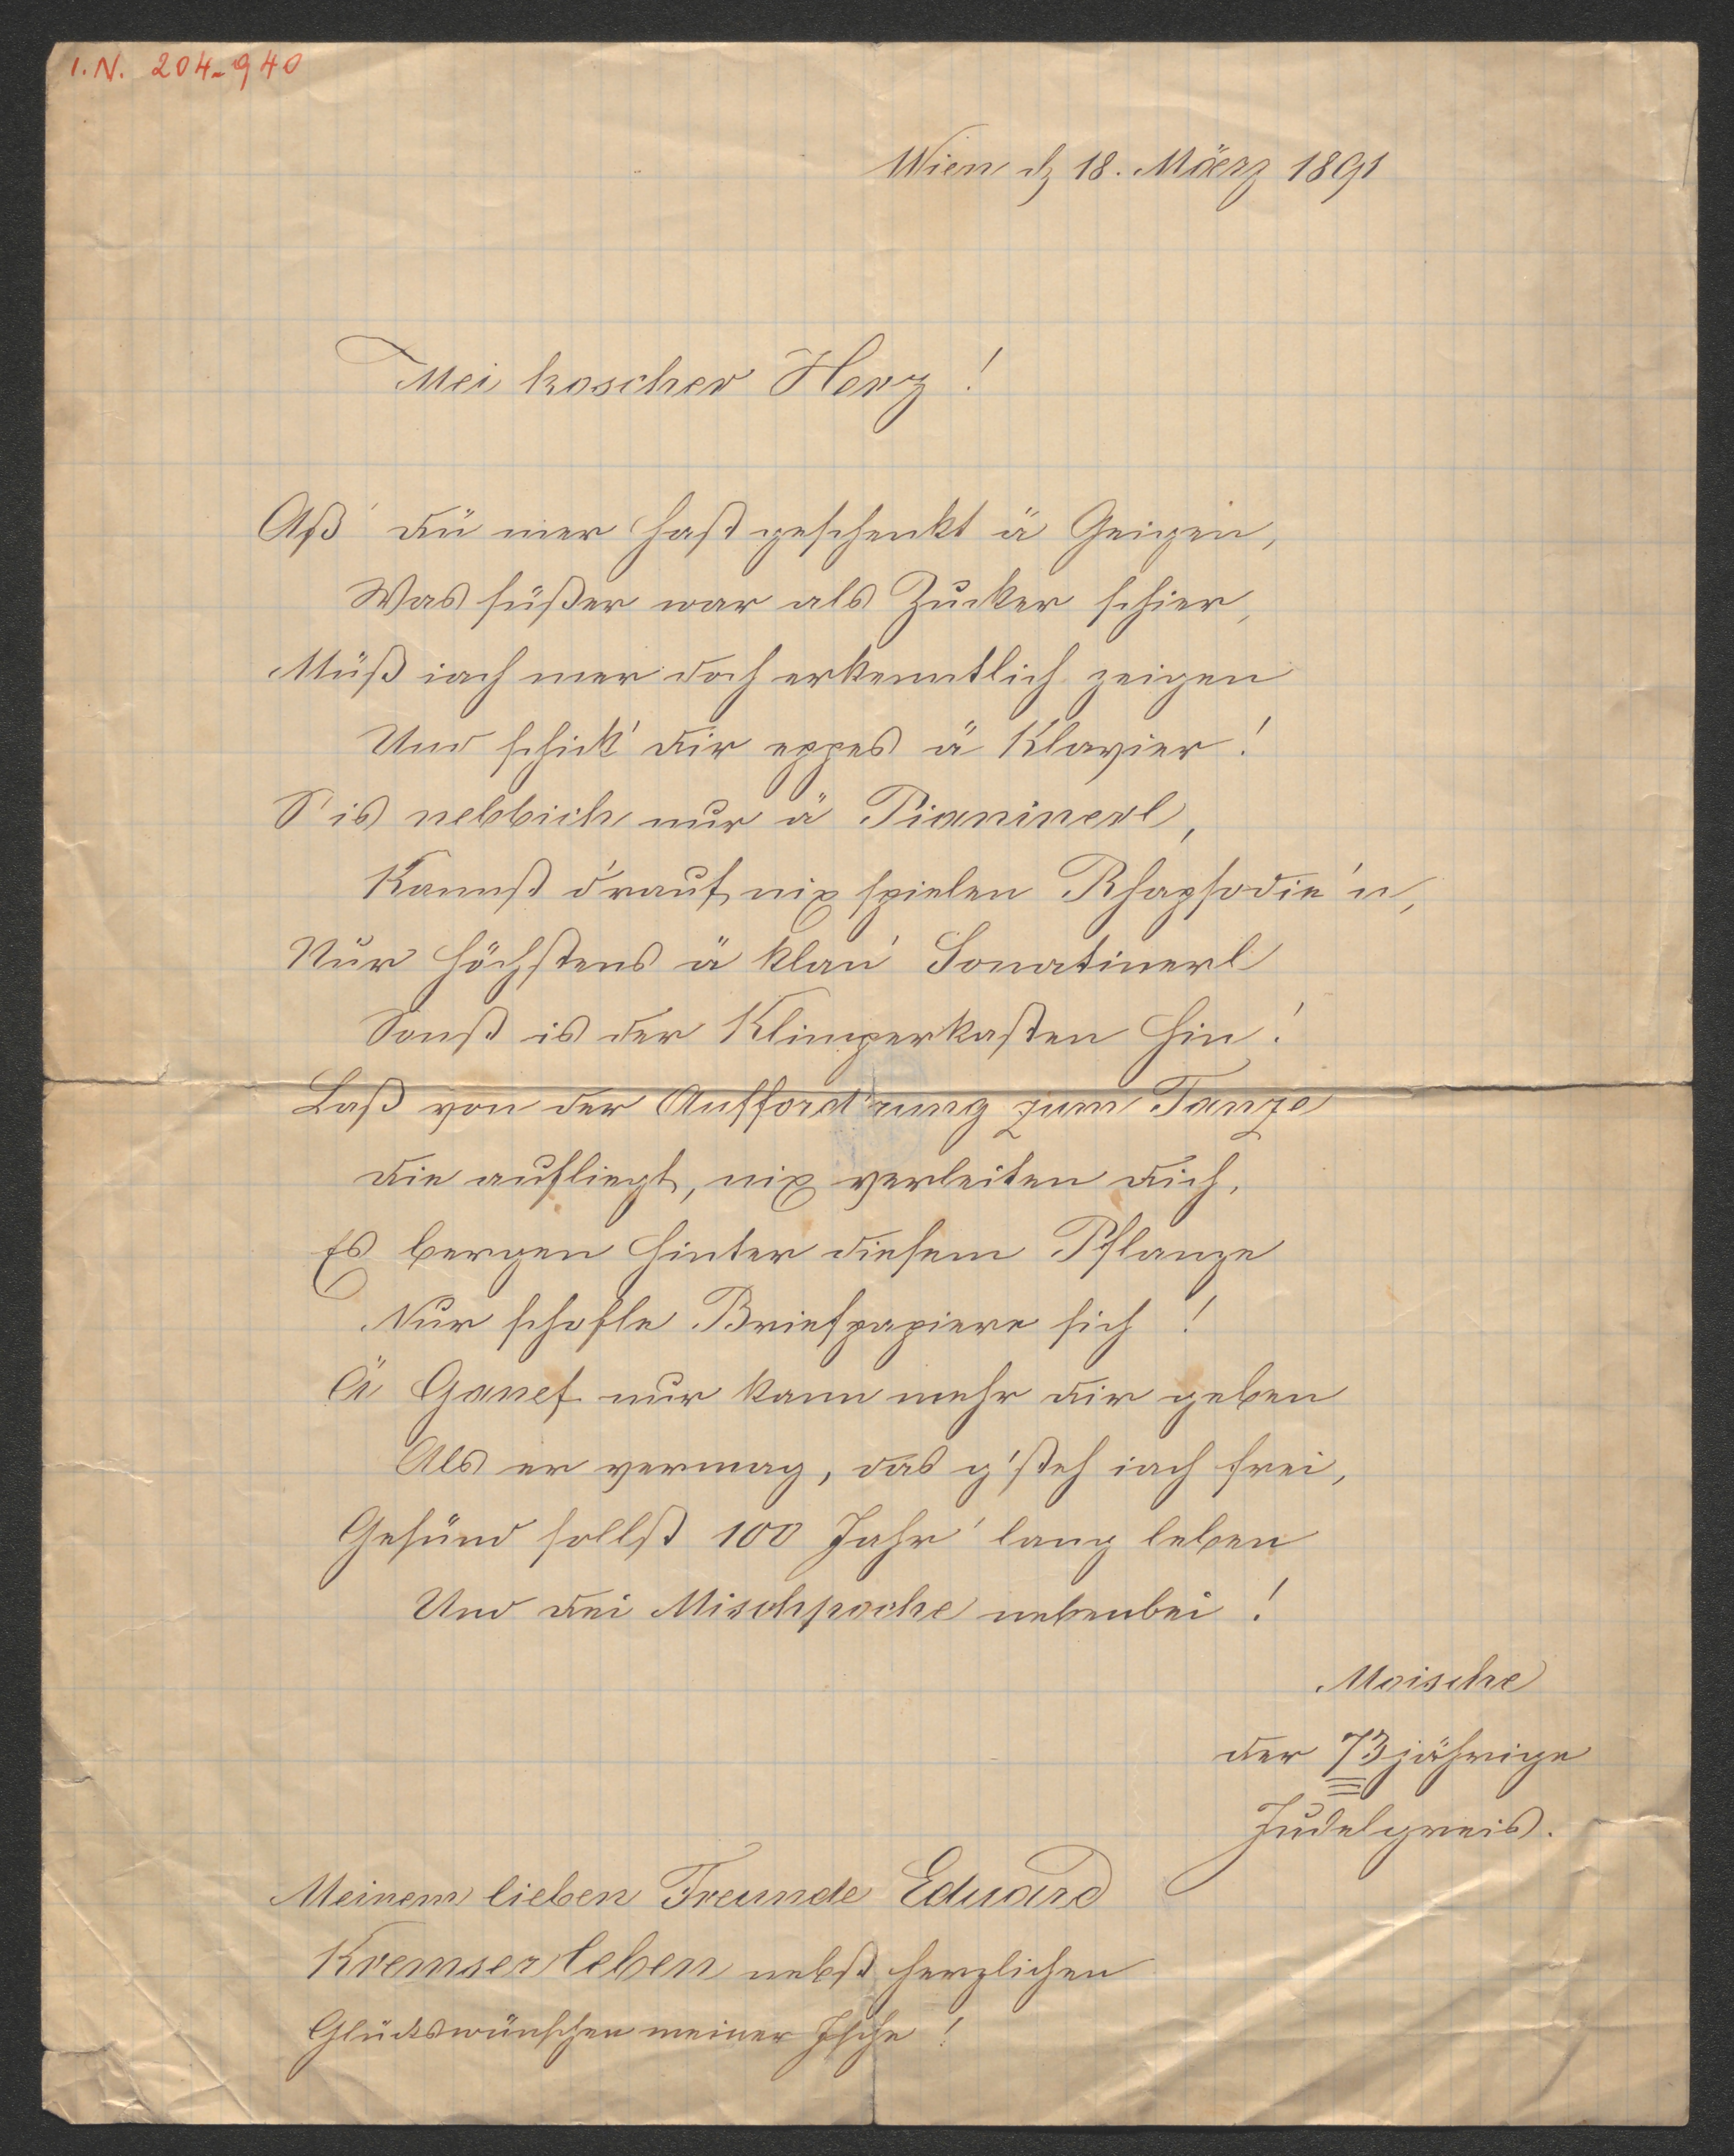 I.N. 204.940
Wien dz 18. Märrz 1891
Mei koscher Herz!
Aß dü mer hast geschenkt ä Geigen,
Was süßer war als Zucker schier,
Müß iach mer doch erkenntlich zeigen
Und schick' dir eppes ä Klavier!
S'is nebbich nur ä Pianinerl,
Kannst d'rauf nix spielen Rhapsodie'n,
Nur höchstens ä klan' Sonatinerl
Sonst is der Klimperkasten hin!
Laß von der Aufford'rung zum Tanze
die aufliegt, nix verleiten dich,
Es bergen hinter diesem Pflanze
Nur schofle Briefpapiere sich!
Ä Ganef nur kann mehr dir geben
Als er vermag, das g'steh iach frei,
Gesünd sollst 100 Jahr' lang leben
Und dei Mischpoche nebenbei!
Moische
der 73jährige
Judelgreis.
Meinem lieben Freunde Eduard
Kremserleben nebst herzlichen
Glückswünschen meiner Ische!